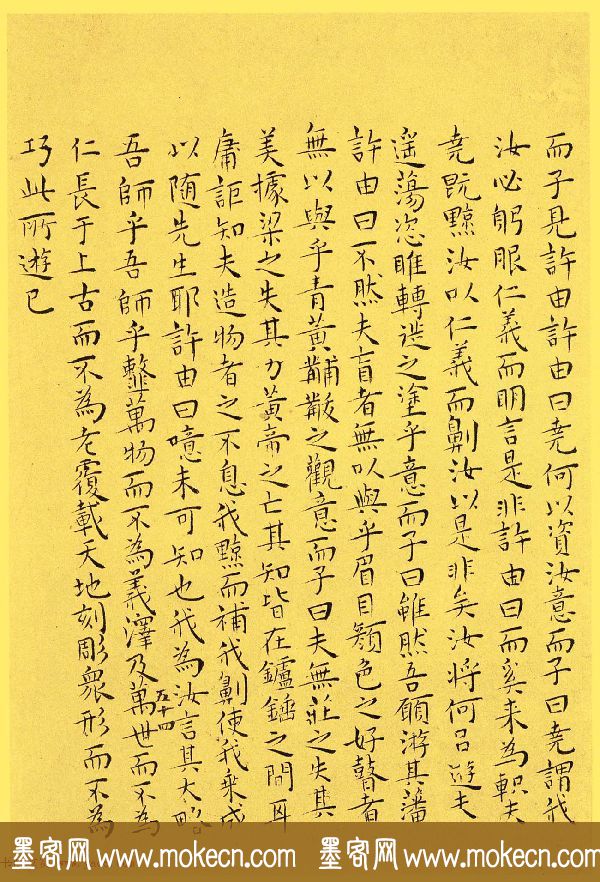 而子見許由許由曰堯何以資汝意而子曰堯謂我
汝必躬服仁義而明言是非許由曰而奚来為軹夫
堯既黥汝以仁義而劓汝以是非矣汝將何㠯遊夫
遥蕩恣睢轉徙之塗乎意而子曰雖然吾願游其藩
許由曰不然夫盲者無以與乎眉目顏色之好瞽者
無以與乎青黃黼黻之觀意而子曰夫無莊之失其
美據梁之失其力黃帝之亡其知皆在鑪錘之間耳
庸詎知夫造物者之不息我黥而補我劓使我乘成
以随先生耶許由曰噫未可知也我為汝言其大略
吾師乎吾師乎韲萬物而不為義澤及萬世而不為
五十四
仁長于上古而不為老覆載天地刻彫衆形而不為
巧此所遊已
墨客网 www.mokecn.com 墨客网 www.mokecn.com